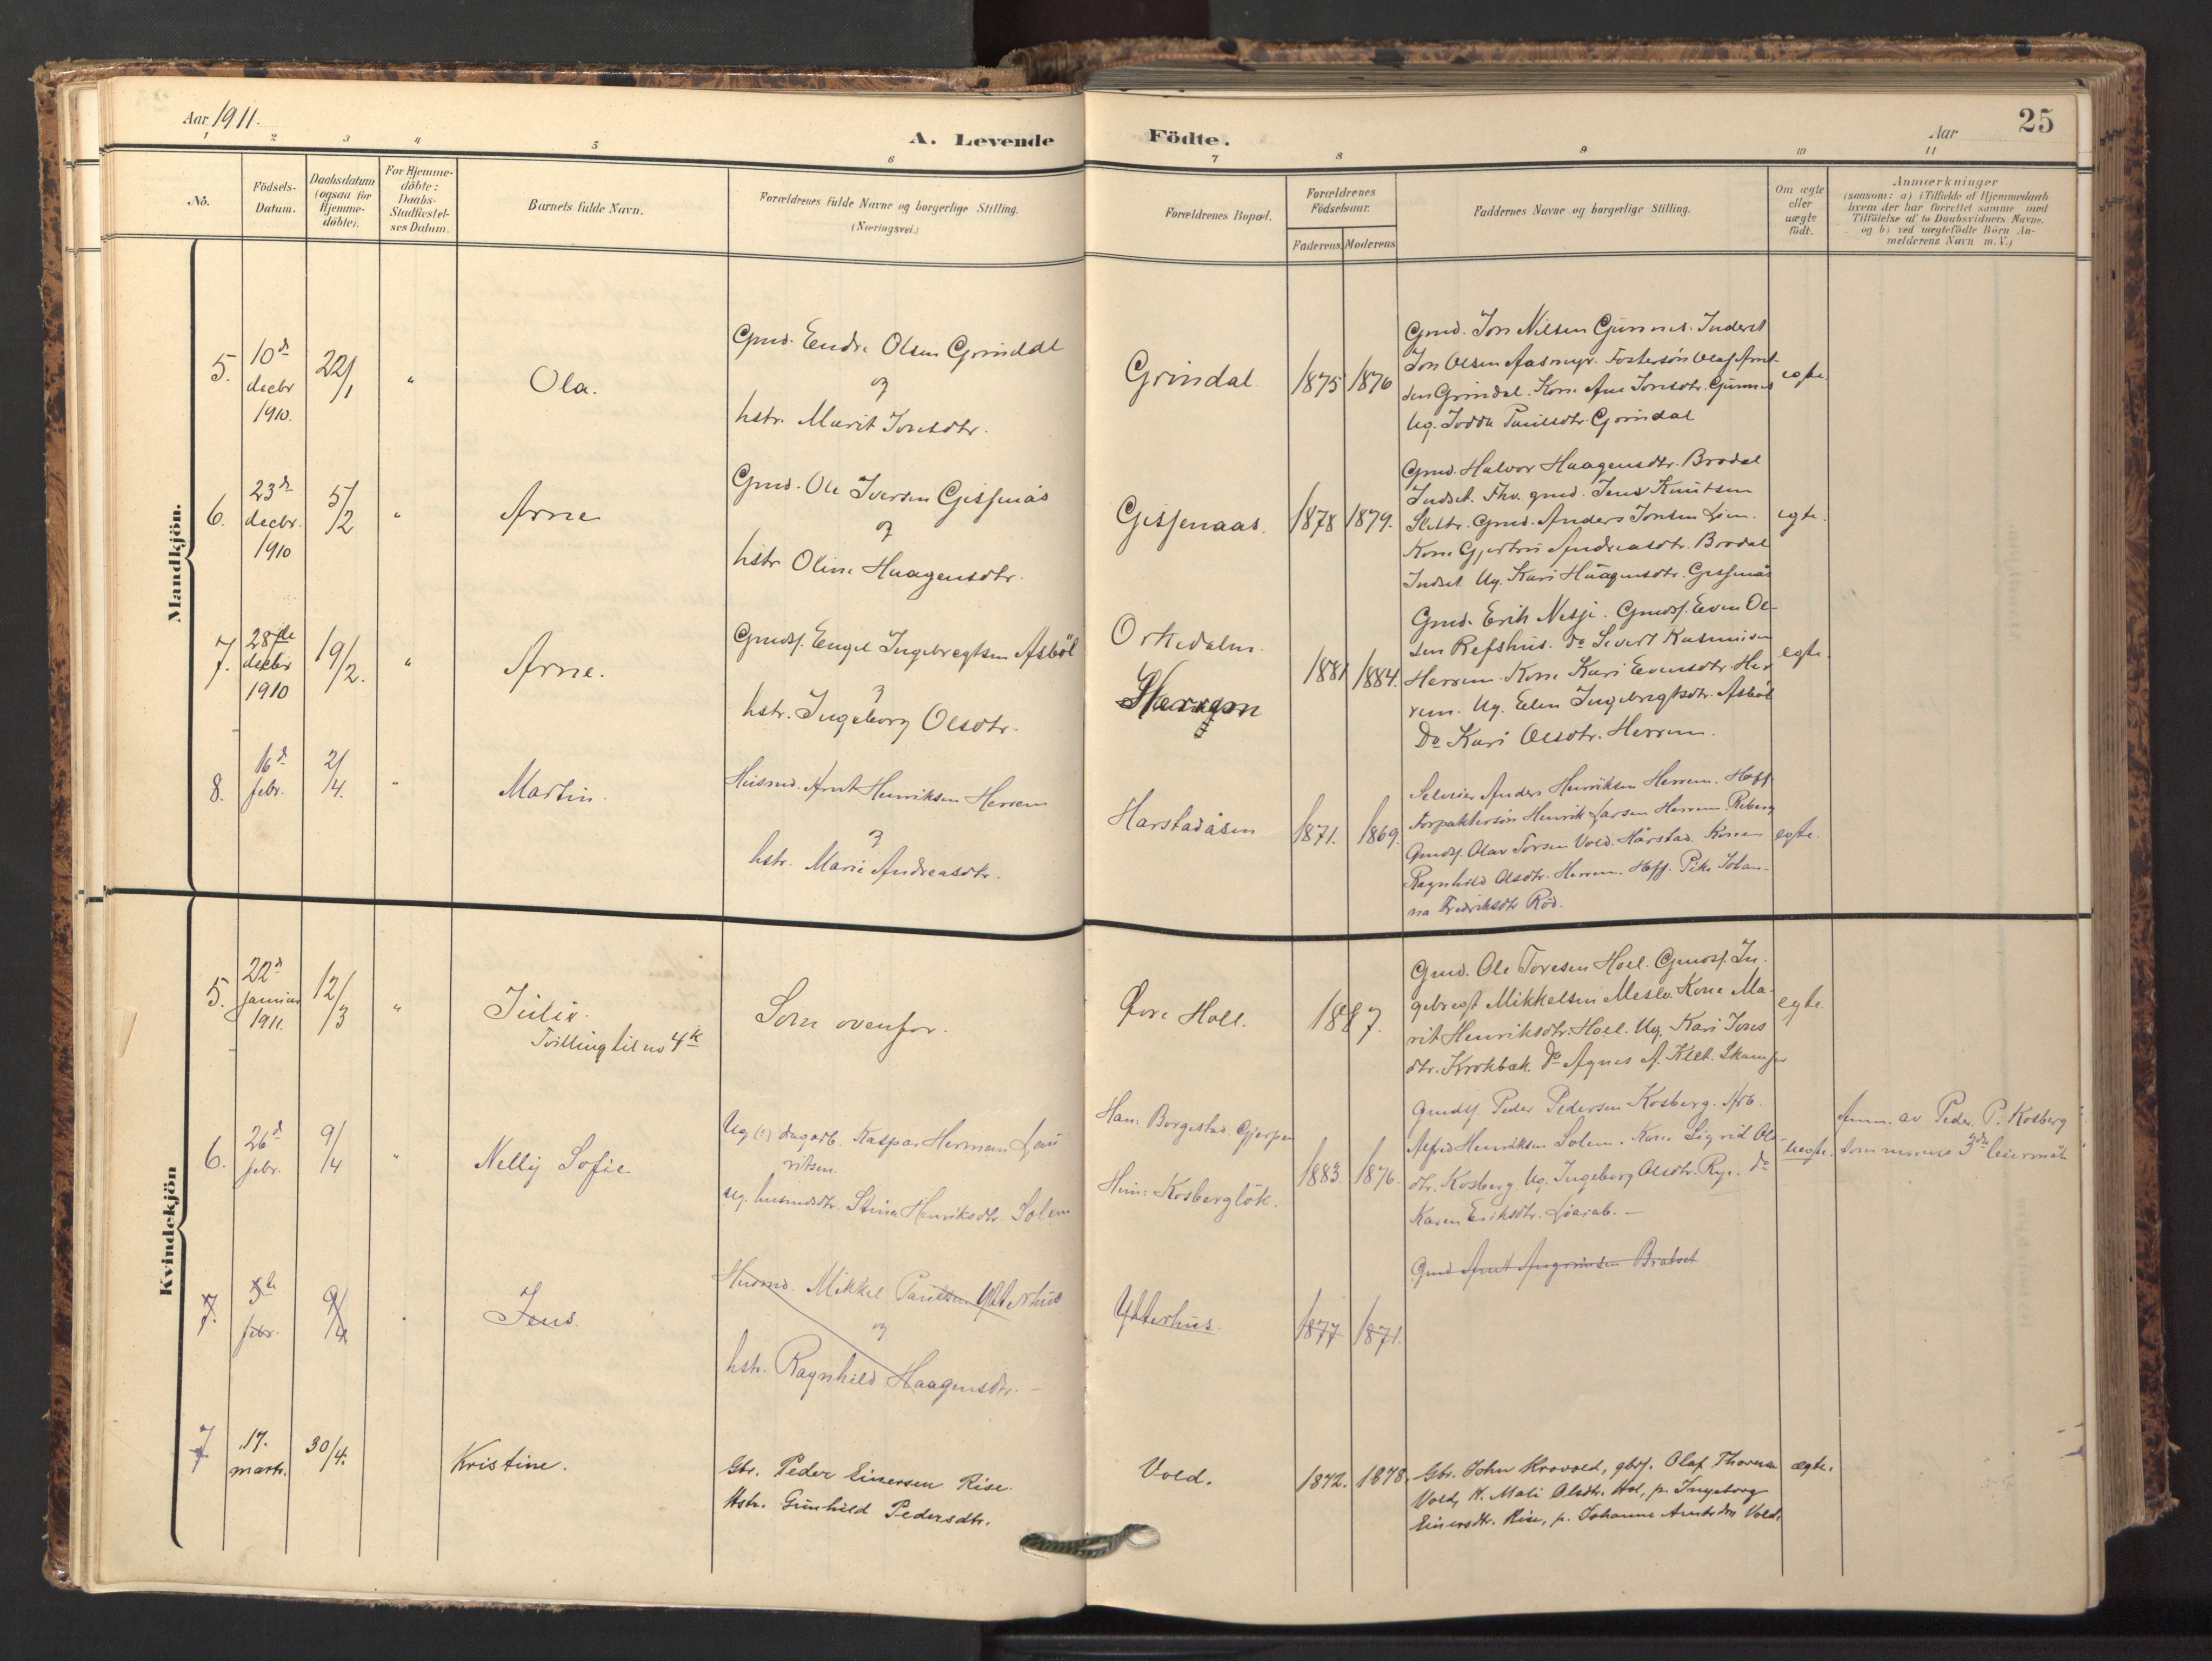 Aar 1911.
A. Levende Födte.
Aar
25
1 2 3 4 5 6 7 8 9 10 11
No.
Födsels-
Datum.
Daabsdatum
(ogsaa for
Hjemme-
döbte).
For Hjemme-
döbte:
Daabs-
Stadfæstel-
ses Datum.
Barnets fulde Navn.
Forældrenes fulde Navne og borgerlige Stilling.
(Næringsvei.)
Forældrenes Bopæl.
Forældrenes
Födselsaar.
Faderens. Moderens
Faddernes Navne og borgerlige Stilling.
Om ægte
eller
uægte
födt.
Anmærkninger
(saasom: a) i Tilfælde af Hjemmedaab
hvem der har forrettet samme med
Tilföielse af to Daabsvidners Navne,
og b) ved uægtefödte Börn An-
melderens Navn m. V.)
Mandkjön.
5. 10de decbr 1910. 22/1 " Ola.
Gmd. Endre Olsen Grindal
og
hstr. Marit Jonsdtr.
Grindal 1875 1876
Gmd. Jon Nilsen Gunnes. Inderst
Jon Olsen Aasmyr. Fostersön Olaf Arnt-
sen Grindal. Kone Ane Jonsdtr. Gunnes
Ug. Jodda Paulsdtr. Grindal
egte.
6. 23de decbr. 1910 5/2 " Arne
Gmd. Ole Iversen Gisnås
og
hstr. Oline Haagensdtr.
Gisnaas. 1878 1879.
Gmd. Halvor Haagensdtr. Brødal
Indset. Fhv. gmd. Jens Knutsen
Slettr. Gmd. Anders Jonsen Lien.
Kone Gjertru Andreasdtr. Brødal
Indset. Ug. Kari Haagensdtr. Gisnås
egte.
7. 28de decbr 1910 19/2. " Arne.
Gmds. Engel Ingebregtsen Asböl
og
hstr. Ingeborg Olsdtr.
Orkedalen.
Herrem
1881 1884.
Gmd. Erik Nesje. Gmds. Even Ol-
sen Refshus. Do Severt Rasmusen
Herrem. Kone Kari Evensdtr. Her-
rem. Ug. Elen Ingebregtsdtr. Asböl
Do Kari Olsdtr. Herrem.
egte.
8. 16de febr. 2/4. " Martin.
Husmd. Arnt Henriksen Herrem
og
hstr. Marie Andreasdtr.
Harstadåsen 1871. 1869.
Selveier Anders Henriksen Herrem. Hoff.
Forpaktersön Henrik Larsen Herrem. Reberg
Gmds. Olav Torsen Vold. Hårstad. Konen
Ragnhild Olsdtr. Herrem. Hoff. Pike Johan-
na Fredriksdtr Röd.
egte.
Kvindekjön
5. 22de januar 1911. 12/3 " Julie.
Tvilling til no 4k
Som ovenfor.
Övre Hoel. 1887.
Gmd. Ole Toresen Hoel. Gmds. In-
gebregt Mikkelsen Meslo. Kone Ma-
rit Henriksdtr. Hoel. Ug. Kari Jons
dtr. Krokbak. Do Agnes A. Klet. Skamfer
egte.
6. 26de febr. 9/4 " Nelly Sofie
Ug. (!) dagarb. Kaspar Herman Lau
ritsen
ug. husmdsdtr. Stina Henriksdtr. Solem
Han: Borgestad. Gjerpen
Hun: Kosberglök.
1883. 1876.
Gmds. Peder Pedersen Kosberg. Arb.
Alfred Henriksen Solem. Kone Sigrid Ols-
dtr. Kosberg. Ug. Ingeborg Olsdtr. Rye. do
Karen Eriksdtr.
uegte.
Anm. av Peder P. Kosberg
som mors 3die leiermål
7. 3de febr. 9/4 Jens.
Husmd. Mikkel Paulsen Ytterhus
og
hstr. Ragnhild Haagensdtr. –
Ytterhus. 1877 1871.
Gmd Arnt Angrimsen Bratset
7 17. marts. 30/4. Kristine.
Gbr. Peder Einersen Rise.
Hstr. Gunhild Pedersdtr.
Vold. 1872. 1878.
Gbr. John Krovold, gbrs. Olaf Thoresen
Vold, K. Mali Olsdtr. Hol, p. Ingeborg
Einersdtr. Rise, p. Johanne Arntsdtr Vold.
ægte.